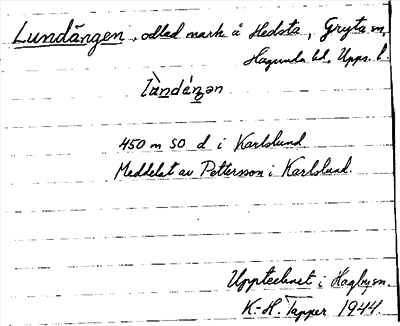 Lundängen, odlad mark å Hedsta, Gryta sn,
Hagunda hd, Upps. l.
450 m SO d i Karlslund
Meddelat av Pettersson i Karlslund.
Upptecknat i Hagby sn.
K.-H. Tapper 1944.